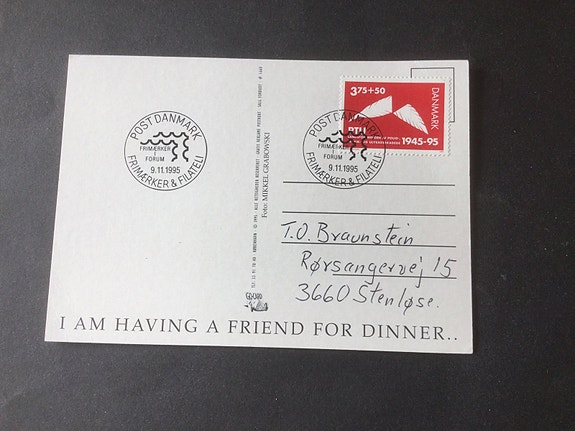 POST DANMARK
FRIMÆRKER
I
FORUM
9.11.1995
FRIMÆRKER & FILATELI
3.75+50
DANMARK
PTU
1945-95
POST DANMARK
FRIMÆRKER
I
FORUM
9.11.1995
FRIMÆRKER & FILATELI
Foto: MIKKEL GRABOWSKI
T.O. Braunstein
Rørsangervej 15
3660 Stenløse.
I AM HAVING A FRIEND FOR DINNER..